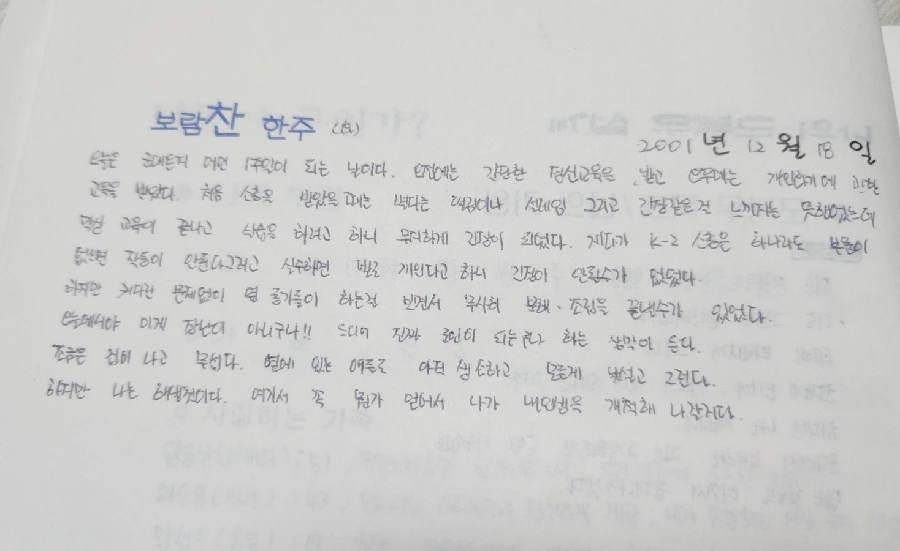 보람찬 한주
2001년 12월 18일
오늘은 훈련받은지 1주일이 되는 날이다. 오전에는 간단한 정신교육을 받고 오후에는 개인화기에 관한
교육을 받았다. 처음 소총을 받았을 때는 색다른 느낌이나 설레임 그리고 간절같은건 느끼지는 못하였는데
막상 교육이 끝나고 실습을 하려고 하니 무지하게 긴장이 되었다. 게다가 K-2 소총은 하나라도 부품이
없으면 작동이 안된다그러고 실수하면 바로 개인다고 하니 긴장이 안할수가 없었다.
하지만 커다란 문제없이 옆 동기들이 하는걸 보면서 무사히 분해·조립을 끝낼수가 있었다.
이게 장난이 아니구나!! 드디어 진짜 군인이 되는구나 하는 생각이 든다.
조금은 겁이 나고 무섭다. 옆에 있는 애들도 아직 생소하고 모든게 낯설고 그런다.
하지만 나는 해낼것이다. 여기서 꼭 뭔가 얻어서 나가 내인생을 개척해 나갈거다.